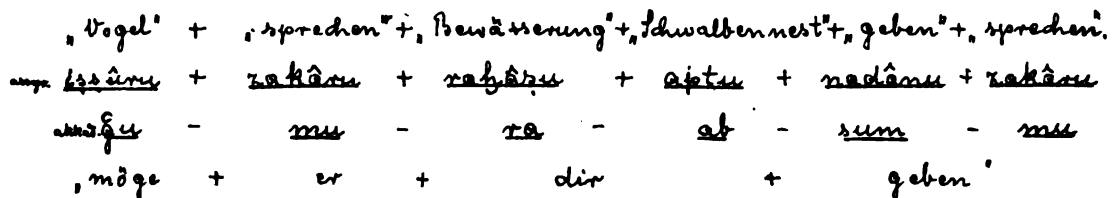 „Vogel" + „sprechen" + „Bewässerung" + „Schwalbennest" + „geben" + „sprechen".
assyr. iṣṣûru + zakâru + raḫâṣu + aptu + nadânu + zakâru
akkad. g̃u - mu - ra - ab - sum - mu
„möge + er + dir + geben"